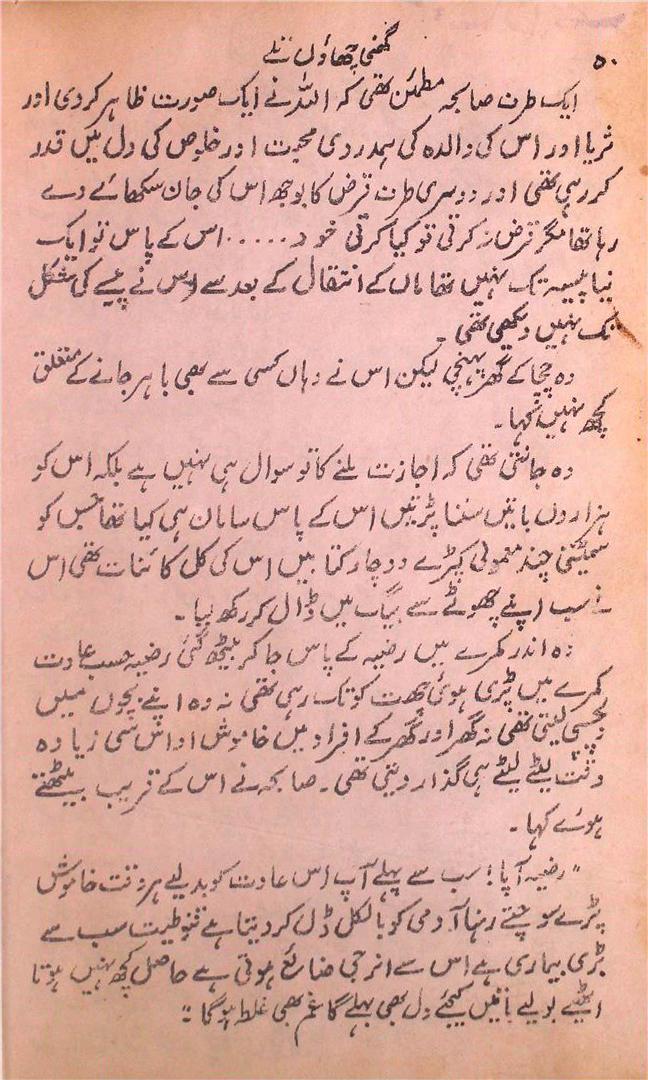 ۵۰
گھنی چھاؤں تلے
ایک طرف صابحہ مطمئن تھی کہ اللہ نے ایک صورت ظاہر کردی اور
ثریا اور اس کی والدہ کی ہمدردی محبت اور خلوص کی دل میں قدر
کررہی تھی اور دوسری طرف قرض کا بوجھ اس کی جان سکھائے دے
رہا تھا مگر قرض نہ کرتی تو کیا کرتی خود ..... اس کے پاس تو ایک
نیا پیسہ تک نہیں تھا ماں کے انتقال کے بعد سے اس نے پیسے کی شکل
تک نہیں دیکھی تھی۔
وہ چچا کے گھر پہنچی لیکن اس نے وہاں کسی سے بھی باہر جانے کے متعلق
کچھ نہیں کہا۔
وہ جانتی تھی کہ اجازت ملنے کا تو سوال ہی نہیں ہے بلکہ اس کو
ہزاروں باتیں سننا پڑتیں اس کے پاس سامان ہی کیا تھا جس کو
سمیٹتی چند معمولی کپڑے دو چار کتابیں اس کی کل کائنات تھی اس
نے سب اپنے چھوٹے سے بیگ میں ڈال کر رکھ لیا۔
وہ اندر کمرے میں رضیہ کے پاس جا کر بیٹھ گئی رضیہ حسب عادت
کمرے میں پڑی ہوئی چھت کو تک رہی تھی نہ وہ اپنے بچوں میں
دلچسپی لیتی تھی نہ گھر اور گھر کے افراد میں خاموش اداس سی زیادہ
وقت لیٹے لیٹے ہی گذار دیتی تھی۔ صابحہ نے اس کے قریب بیٹھتے
ہوئے کہا۔
"رضیہ آپا! سب سے پہلے آپ اس عادت کو بدلیے ہر وقت خاموش
پڑے سوچتے رہنا آدمی کو بالکل ڈل کر دیتا ہے قنوطیت سب سے
بڑی بیماری ہے اس سے انرجی ضائع ہوتی ہے حاصل کچھ نہیں ہوتا
اٹھیے بولیے باتیں کیجئے دل بھی بہلے گا غم بھی غلط ہوگا"۔